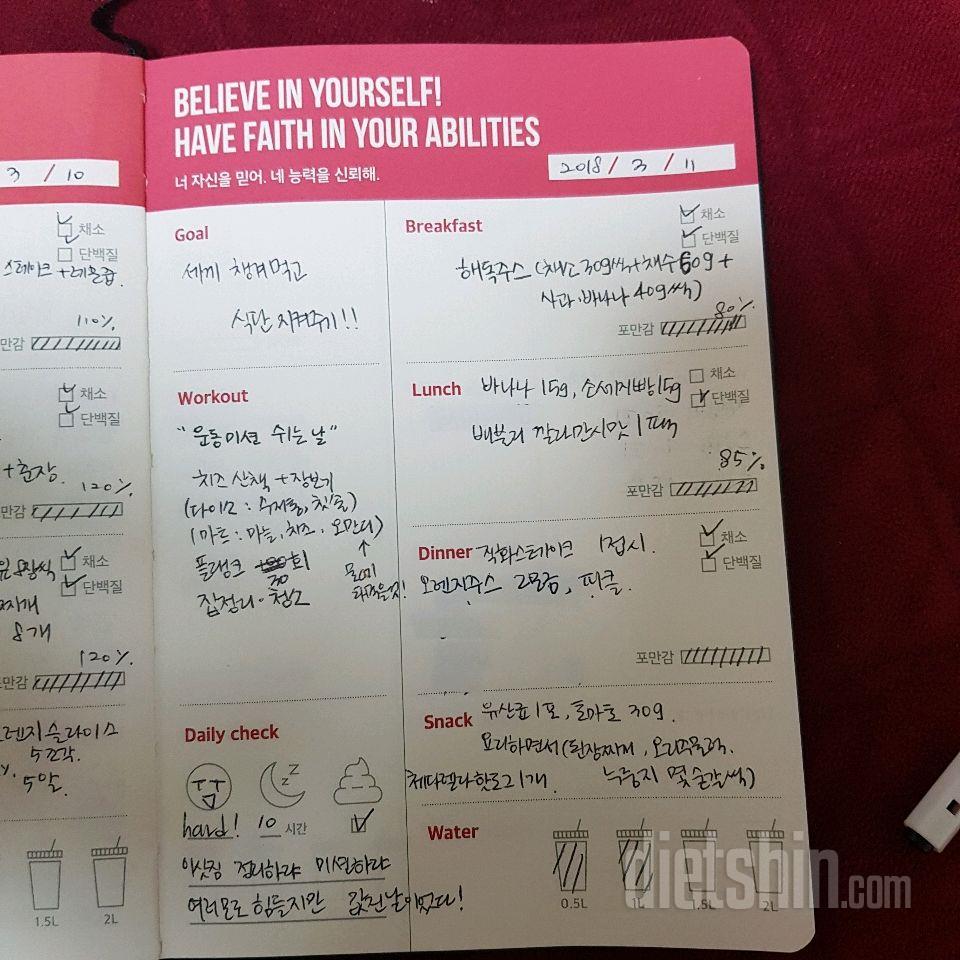 BELIEVE IN YOURSELF!
HAVE FAITH IN YOUR ABILITIES
너 자신을 믿어. 네 능력을 신뢰해.
2018 / 3 / 11
Goal
세끼 챙겨먹고
식단 지켜주기!!
Workout
"운동미션 쉬는날"
치즈 산책 + 장보기
(마트 : 마늘, 치즈, 오만디)
플랭크 30 회
집정리·청소
Daily check
hard! 10 시간
이삿짐 정리하랴 미션하랴
여러모로 힘들지만 값진날이었다!
Breakfast
채소
단백질
해독주스 (채소 30g씩+채수 60g +
사과·바나나 40g씩)
80%
포만감
Lunch 바나나 15g, 소세지빵 15g
채소
단백질
배불리 깔라만시맛 1팩
85%
포만감
Dinner 직화스테이크 1접시.
채소
단백질
오렌지주스 2모금, 피클.
포만감
Snack 유산균 1포, 토마토 30g.
요리하면서 (된장찌개, 오리주물럭,
누룽지 몇 숟갈씩)
체다젤라핫도그 1개
Water
0.5L 1L 1.5L 2L
3 / 10
채소
단백질
스테이크 + 레몬즙.
110%
만감
채소
단백질
+ 춘장.
120%
만감
채소
단백질
찌개
8개
120%
만감
렌지슬라이스
5조각.
5알.
1.5L 2L
dietshin.com